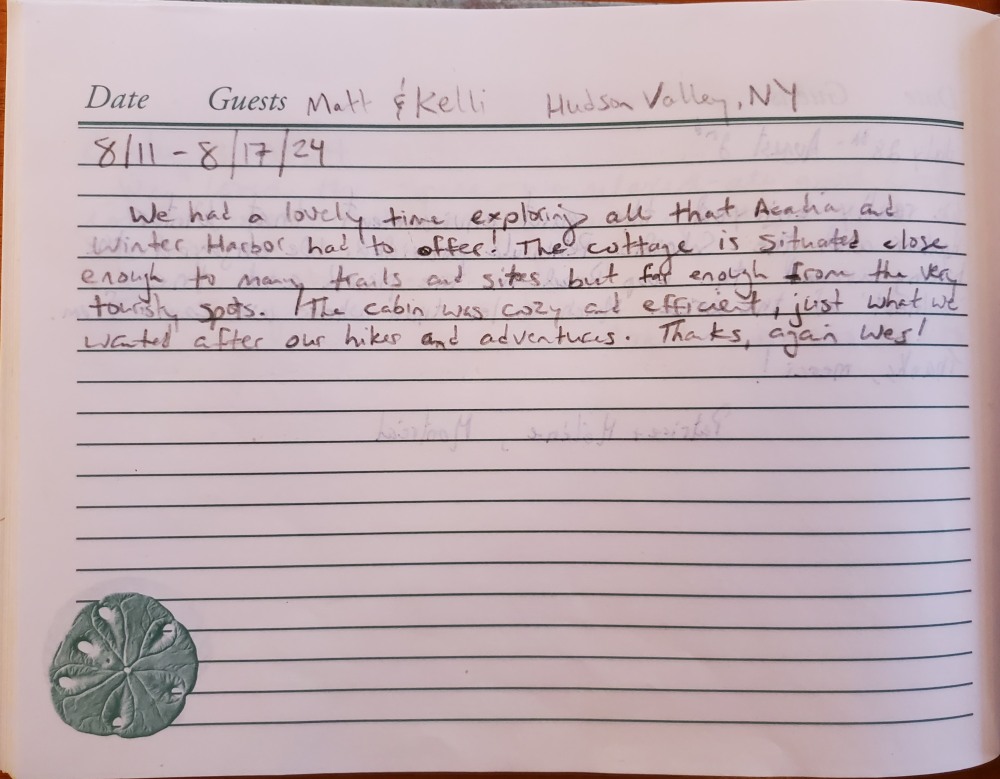 Date Guests Matt & Kelli Hudson Valley, NY
8/11 - 8/17/24
We had a lovely time exploring all that Acadia and
Winter Harbor had to offer! The cottage is situated close
enough to many trails and sites but far enough from the very
touristy spots. The cabin was cozy and efficient, just what we
wanted after our hikes and adventures. Thanks, again Wes!